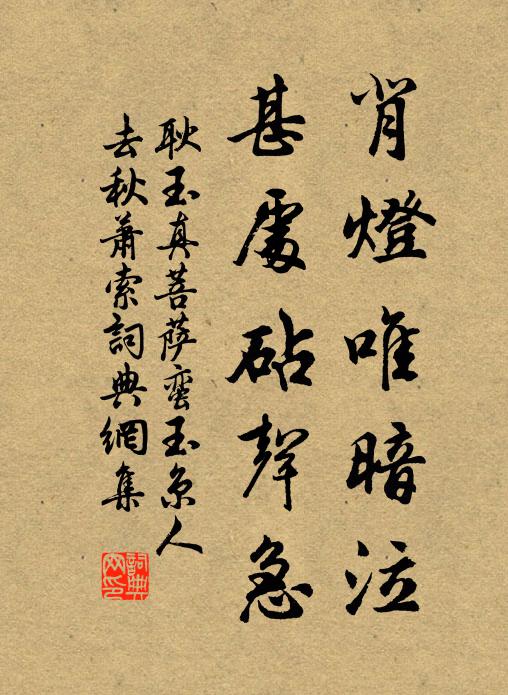 背燈唯暗泣
甚處砧聲急
耿玉真菩薩蛮玉京人
去秋蕭索詞典網集
詞典
网印